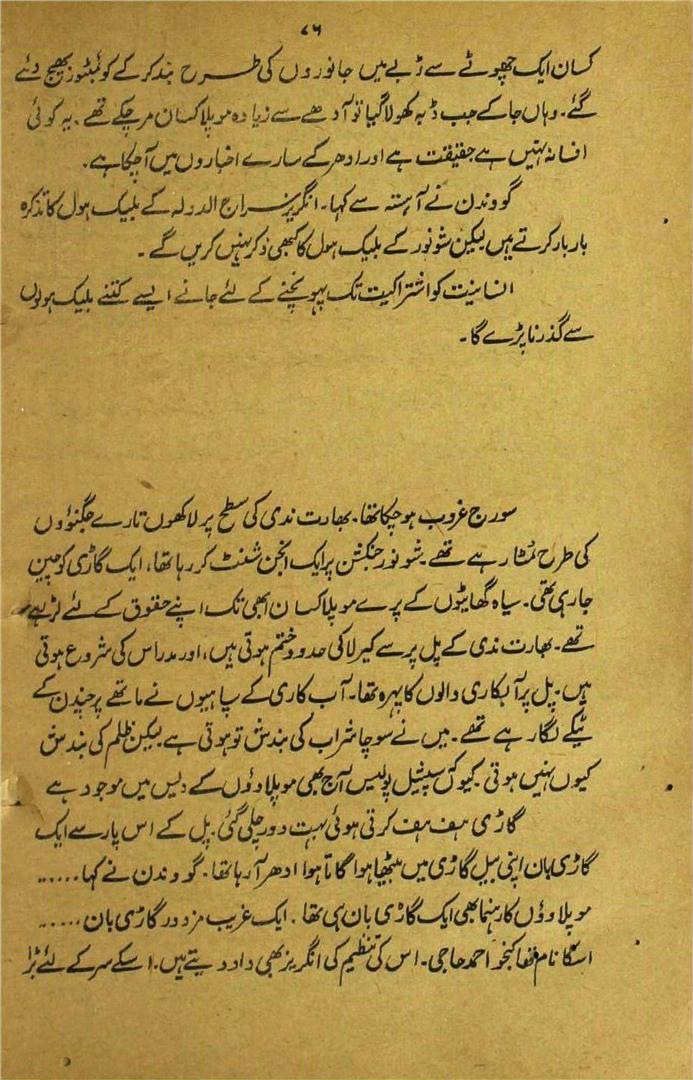 ۷۶
کسان ایک چھوٹے سے ڈبے میں جانوروں کی طرح بند کر کے کوئمبٹور بھیج دئے
گئے۔ وہاں جا کے جب ڈبہ کھولا گیا تو آدھے سے زیادہ موپلا کسان مر چکے تھے۔ یہ کوئی
افسانہ نہیں ہے حقیقت ہے اور ادھر کے سارے اخباروں میں آ چکا ہے۔
گووندن نے آہستہ سے کہا۔ انگریز سراج الدولہ کے بلیک ہول کا تذکرہ
بار بار کرتے ہیں لیکن شونور کے بلیک ہول کا کبھی ذکر نہیں کریں گے۔
انسانیت کو اشتراکیت تک پہونچنے کے لئے جانے ایسے کتنے بلیک ہولوں
سے گذرنا پڑے گا۔
سورج غروب ہو چکا تھا۔ بھارت ندی کی سطح پر لاکھوں تارے جگنوؤں
کی طرح ٹمٹا رہے تھے۔ شونور جنکشن پر ایک انجن شنٹ کر رہا تھا، ایک گاڑی کوچین
جا رہی تھی۔ سیاہ گھاٹیوں کے پرے موپلا کسان ابھی تک اپنے حقوق کے لئے لڑ رہے
تھے۔ بھارت ندی کے پل پر سے کیرلا کی حدود ختم ہوتی ہیں، اور مدراس کی شروع ہوتی
ہیں۔ پل پر آبکاری والوں کا پہرہ تھا۔ آب کاری کے سپاہیوں نے ماتھے پر چندن کے
ٹیکے لگا رہے تھے۔ میں نے سوچا شراب کی بندش تو ہوتی ہے لیکن ظلم کی بندش
کیوں نہیں ہوتی۔ کیوں سپیشل پولیس آج بھی موپلاوؤں کے دیس میں موجود ہے
گاڑی ہف ہف کرتی ہوئی بہت دور چلی گئی۔ پل کے اس پار سے ایک
گاڑی بان اپنی بیل گاڑی میں بیٹھا ہوا گاتا ہوا ادھر آ رہا تھا۔ گووندن نے کہا.....
موپلاوؤں کا رہنما بھی ایک گاڑی بان ہی تھا۔ ایک غریب مزدور گاڑی بان.....
اسکا نام احمد حاجی۔ اس کی تنظیم کی انگریز بھی داد دیتے ہیں۔ اسکے سر کے لئے بڑا